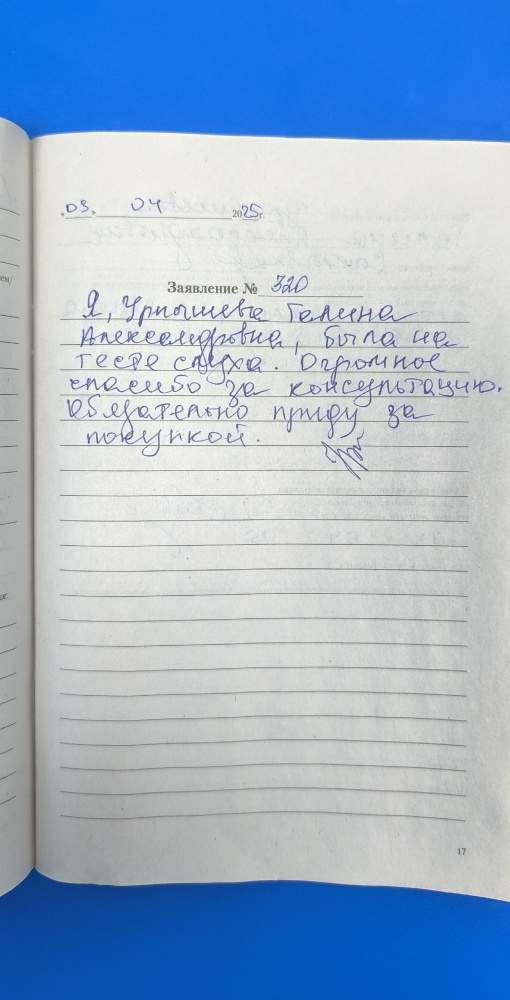 .05. 04 2025г.
Заявление № 320
Я, Урпышева Галина
Александровна, была на
тесте слуха. Огромное
спасибо за консультацию.
Обязательно приду за
покупкой.
17